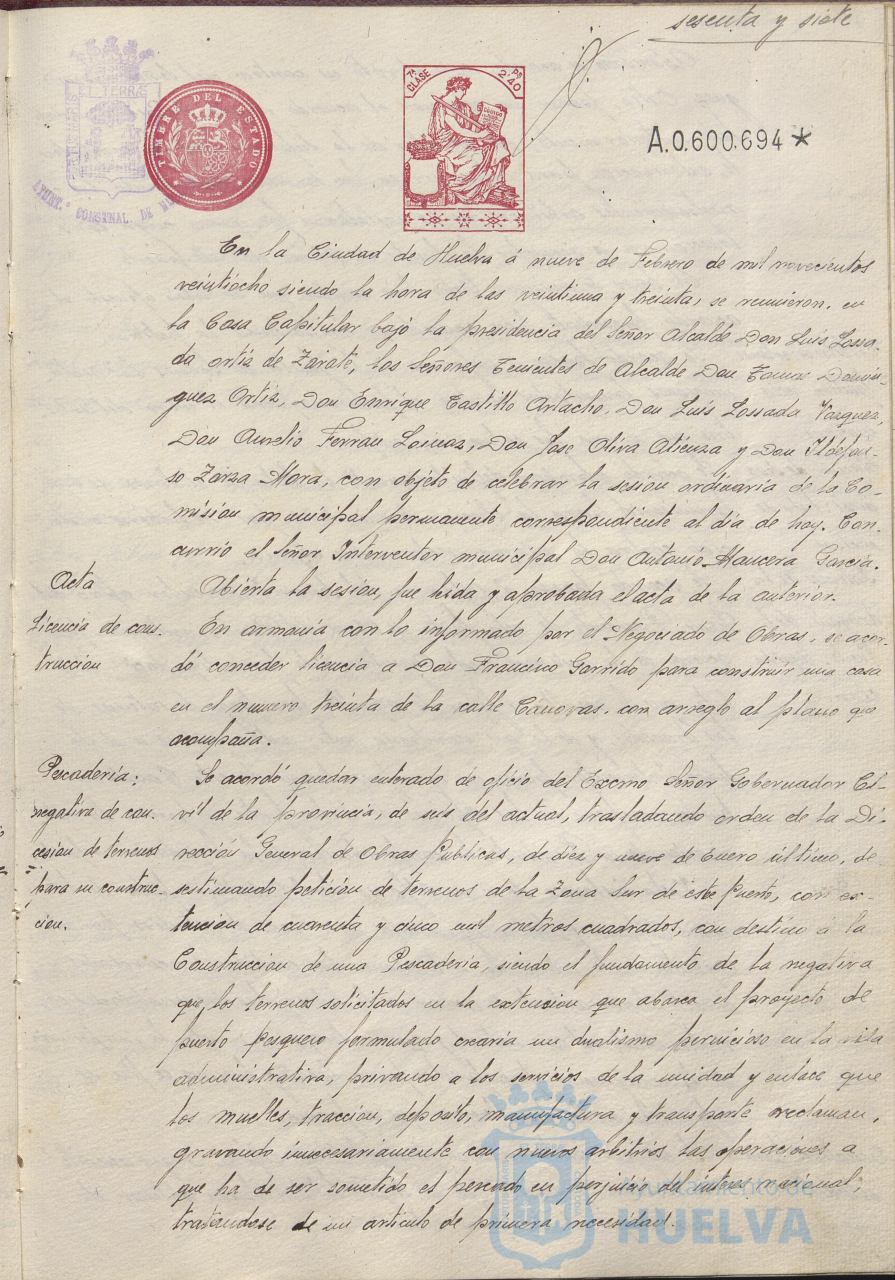 sesenta y siete
TIMBRE DEL ESTADO
7ª CLASE
2'40 Ps
A.0.600.694 *
AYUNT.º CONSTNAL. DE
En la Ciudad de Huelva á nueve de Febrero de mil novecientos
veintiocho siendo la hora de las veintiuna y treinta, se reunieron, en
la Casa Capitular bajo la presidencia del Señor Alcalde Don Luis Lossa-
da Ortiz de Zárate, los Señores Tenientes de Alcalde Don Tomas Domin-
guez Ortiz, Don Enrique Castillo Artacho, Don Luis Lossada Vazquez,
Don Aurelio Ferran Don Jose Oliva Atienza y Don Ildefon-
so Zarza Mora, con objeto de celebrar la sesion ordinaria de la Co-
mision municipal permanente correspondiente al dia de hoy. Con-
currió el Señor Interventor municipal Don Antonio Mancera Garcia.
Acta
Abierta la sesion, fue leida y aprobada el acta de la anterior.
Licencia de cons-
truccion
En armonia con lo informado por el Negociado de Obras, se acor-
dó conceder licencia a Don Francisco Garrido para construir una casa
en el numero treinta de la calle Cánovas, con arreglo al plano que
acompaña.
Pescadería:
negativa de con-
cesion de terrenos
para su construc-
cion.
Se acordó quedar enterado de oficio del Excmo Señor Gobernador Ci-
vil de la provincia, de seis del actual, trasladando orden de la Di-
rección General de Obras Publicas, de diez y nueve de Enero último, de
sestimando petición de terrenos de la Zona Sur de este Puerto, con ex-
tencion de cuarenta y cinco mil metros cuadrados, con destino á la
Construccion de una Pescadería, siendo el fundamento de la negativa
que, los terrenos solicitados en la extencion que abarca el proyecto de
puerto pesquero formulado crearia un dualismo pernicioso en la vida
administrativa, privando a los servicios de la unidad y enlace que
los muelles, traccion, deposito, manufactura y transporte reclaman,
gravando innecesariamente con nuevos arbitrios las operaciones a
que ha de ser sometido el pescado en perjuicio del interes nacional,
tratandose de un articulo de primera necesidad.
Ayuntamiento de
HUELVA